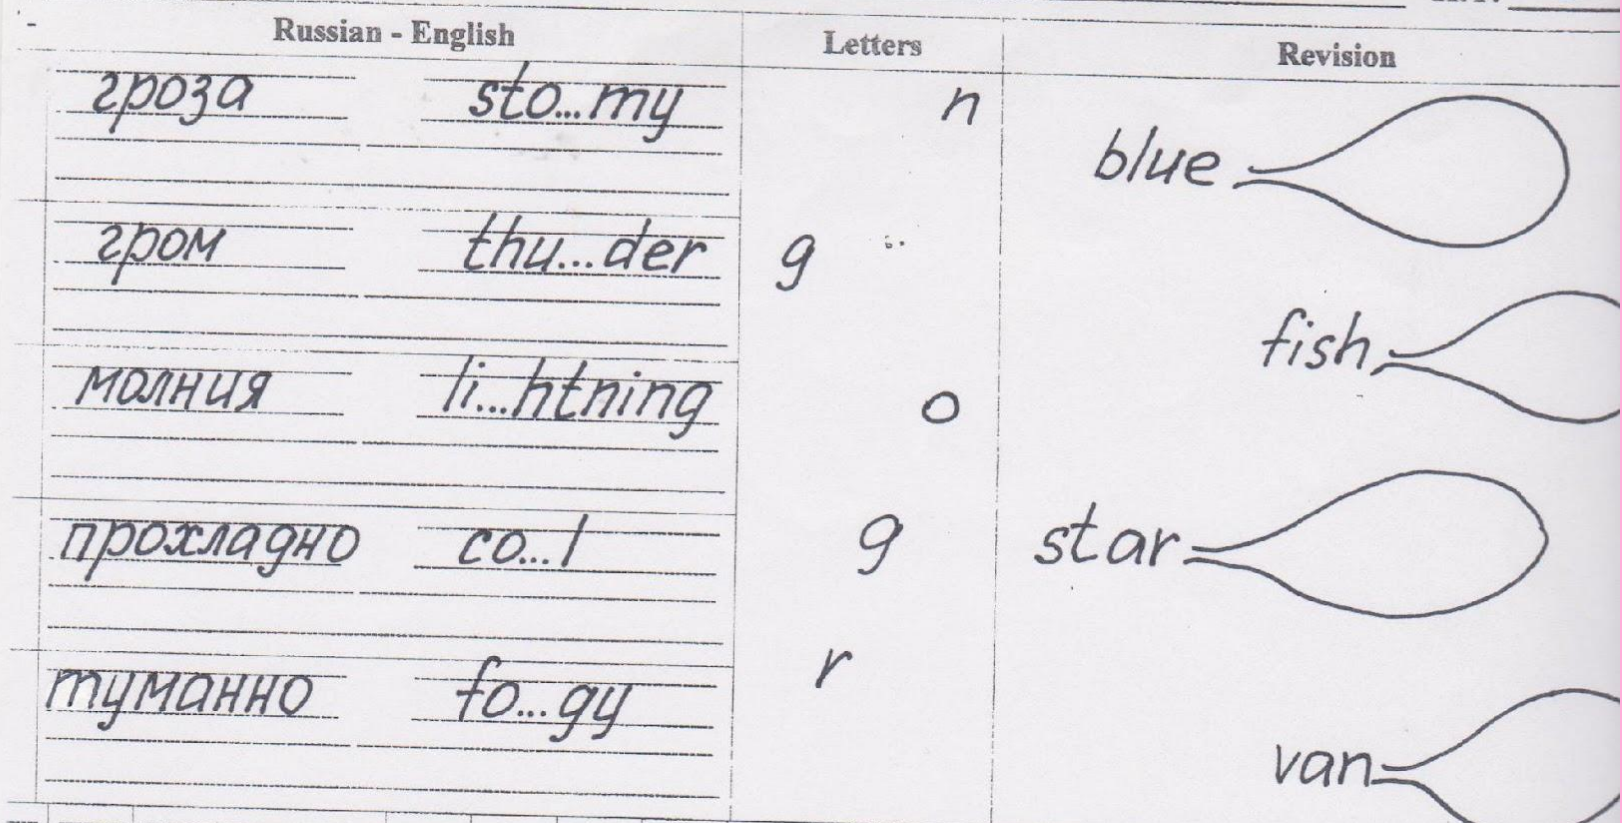 Russian - English Letters Revision
гроза sto...my n
blue
гром thu...der g
fish
молния li...htning o
прохладно co...l g star
туманно fo...gy r
van